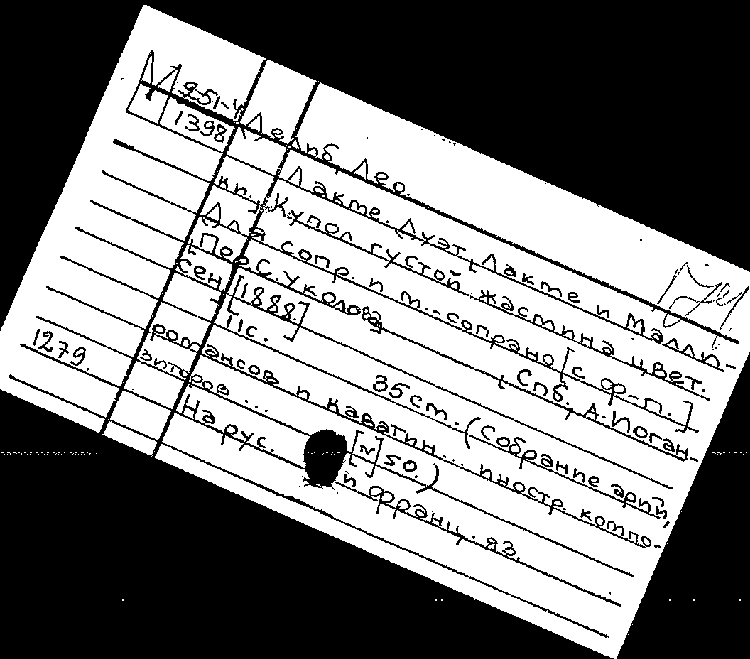 М 251-4
1398
Делиб, Лео.
Лакме. Дуэт Лакме и Малли-
ки „Купол густой жасмина цвет.
Для сопр. и м.-сопрано [с ф-п.]
Пер. С. Уколова. Спб., А. Иоган-
сен, [1888]
11с. 35 см. (Собрание арий,
романсов и каватин... иностр. компо-
зиторов ... [№] 50.)
На рус. и франц. яз.
1279.